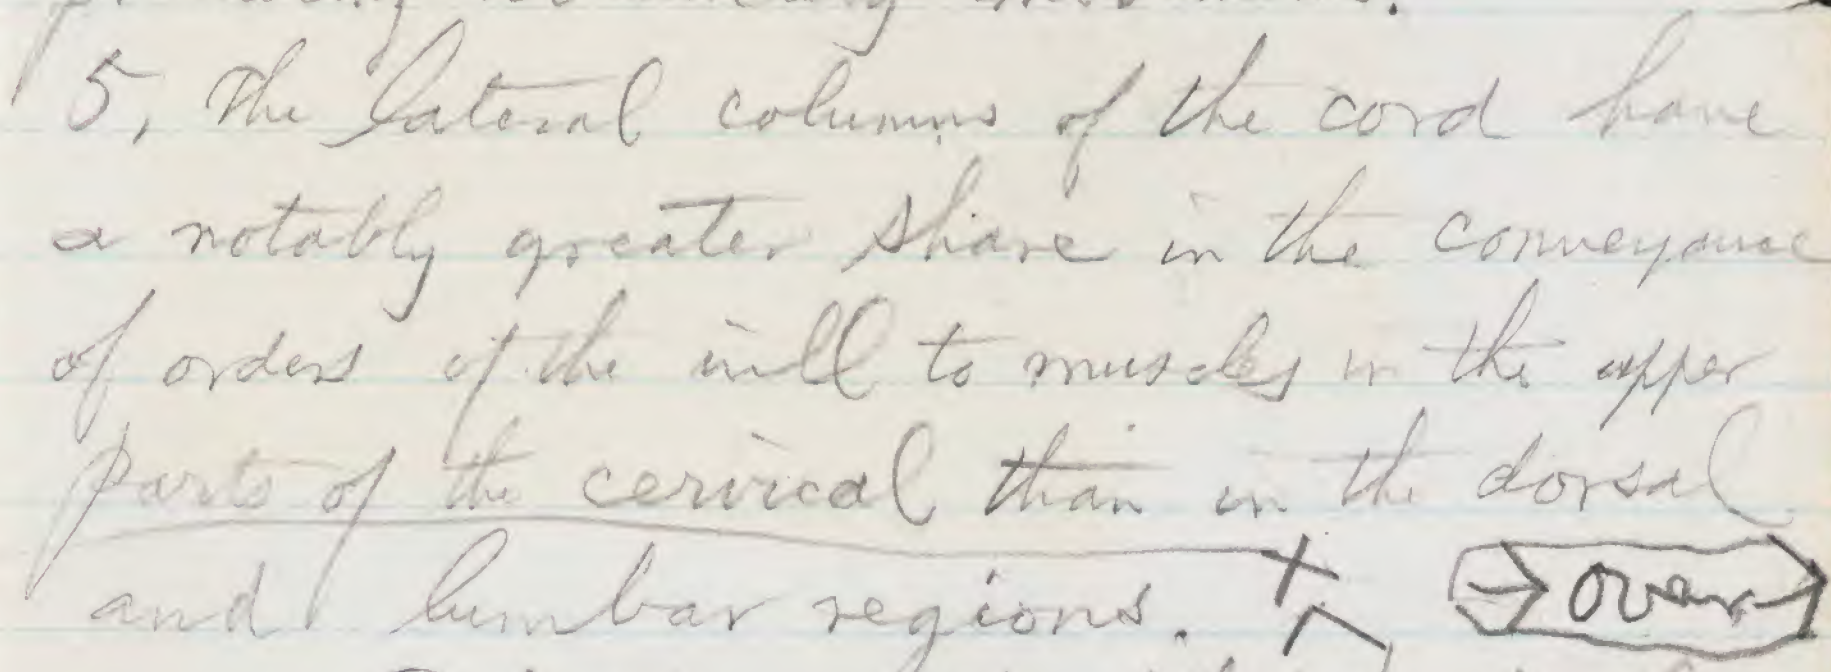 5, The lateral columns of the cord have
a notably greater share in the conveyance
of orders of the will to muscles in the upper
parts of the cervical than in the dorsal
and lumbar regions. → over →